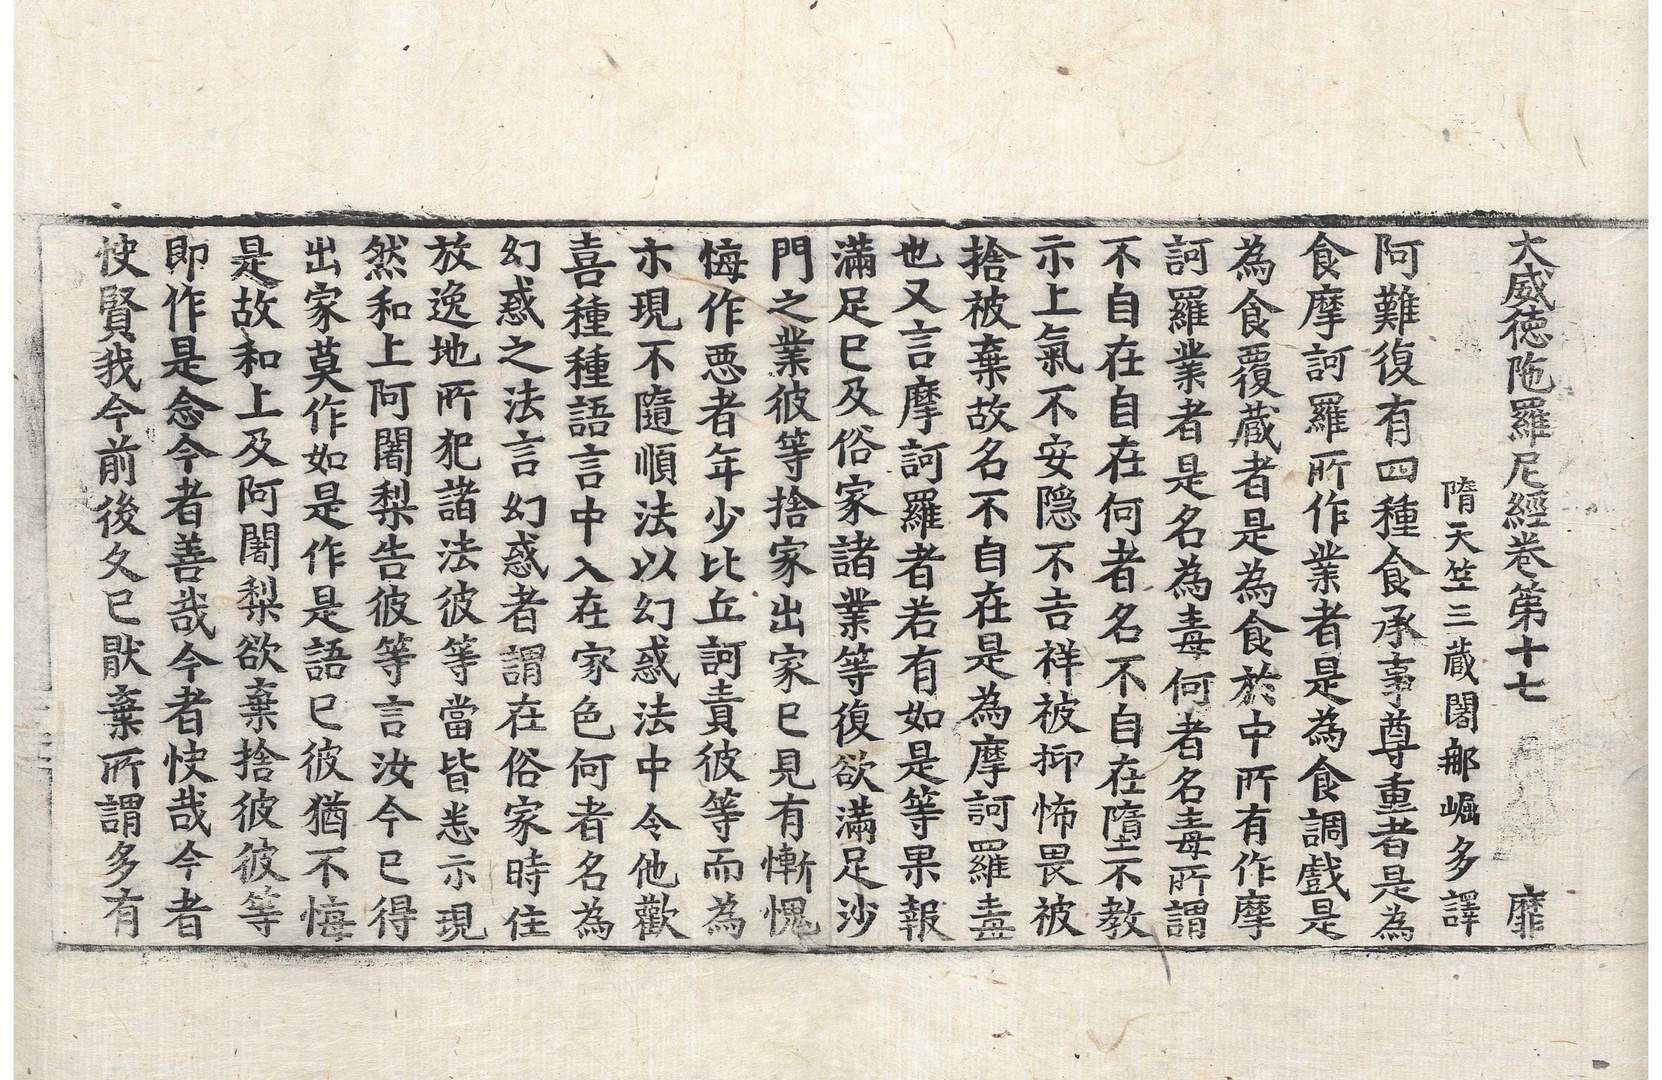 大威德陁羅尼經卷第十七　靡
隋天竺三藏闍那崛多譯
阿難復有四種食承事尊重者是為
食摩訶羅所作業者是為食調戲是
為食覆藏者是為食於中所有作摩
訶羅業者是名為毒何者名毒所謂
不自在自在何者名不自在墮不教
示上氣不安隱不吉祥被抑怖畏被
捨被棄故名不自在是為摩訶羅毒
也又言摩訶羅者若有如是等果報
滿足已及俗家諸業等復欲滿足沙
門之業彼等捨家出家已見有慚愧
悔作惡者年少比丘訶責彼等而為
亦現不隨順法以幻惑法中令他歡
喜種種語言中入在家色何者名為
幻惑之法言幻惑者謂在俗家時住
放逸地所犯諸法彼等當皆悉示現
然和上阿闍梨告彼等言汝今已得
出家莫作如是作是語已彼猶不悔
是故和上及阿闍梨欲棄捨彼彼等
即作是念今者善哉今者快哉今者
快賢我今前後久已猒棄所謂多有